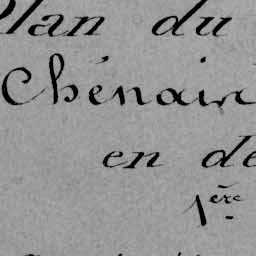 Plan du
Chénair
en de
1ère